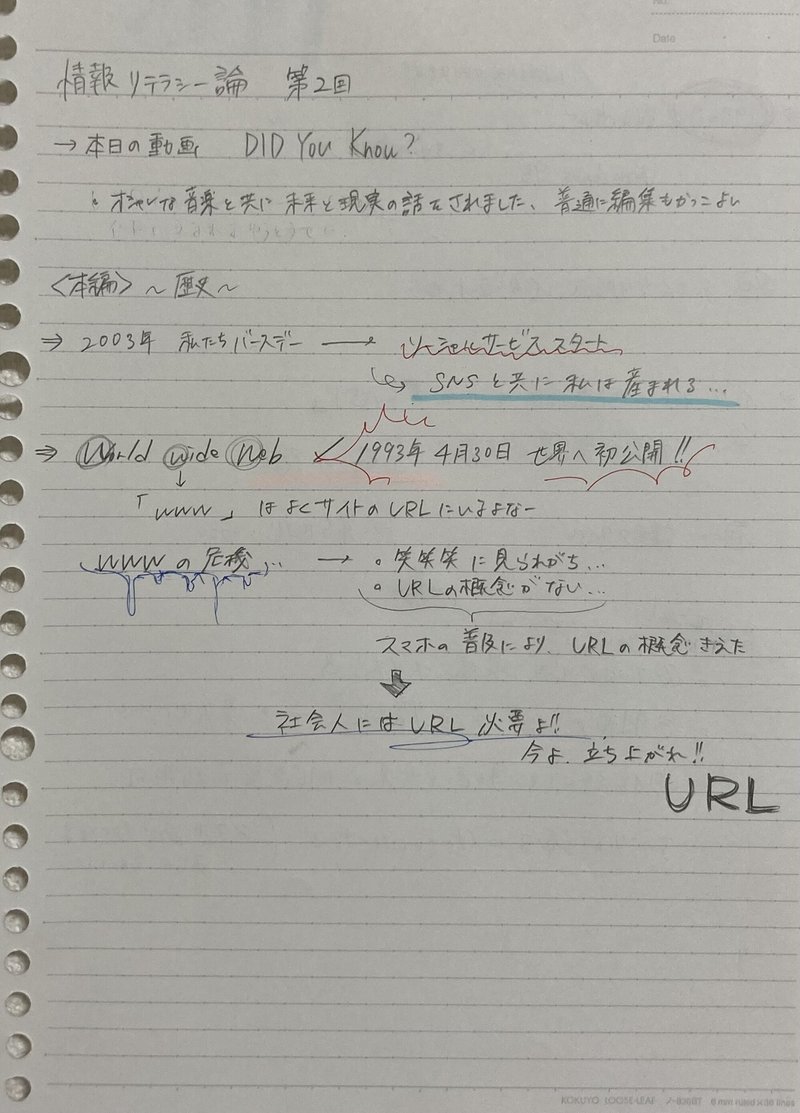 No.
Date
情報リテラシー論 第2回
→ 本日の動画 DID You Know?
オシャレな音楽と共に未来と現実の話をされました、普通に編集もかっこよい
<本編> ~歴史~
⇒ 2003年 私たちバースデー → ソーシャルサービススタート
↳ SNSと共に私は産まれる...
⇒ World wide Web 1993年4月30日 世界へ初公開!!
↓
「www」はよくサイトのURLにいるよなー
wwwの危機... → 。笑笑笑に見られがち...
。URLの概念がない...
スマホの普及により、URLの概念きえた
⬇
社会人にはURL必要よ!!
今よ、立ち上がれ!!
URL
KOKUYO LOOSE-LEAF ノ-836BT 6 mm ruled×36 lines